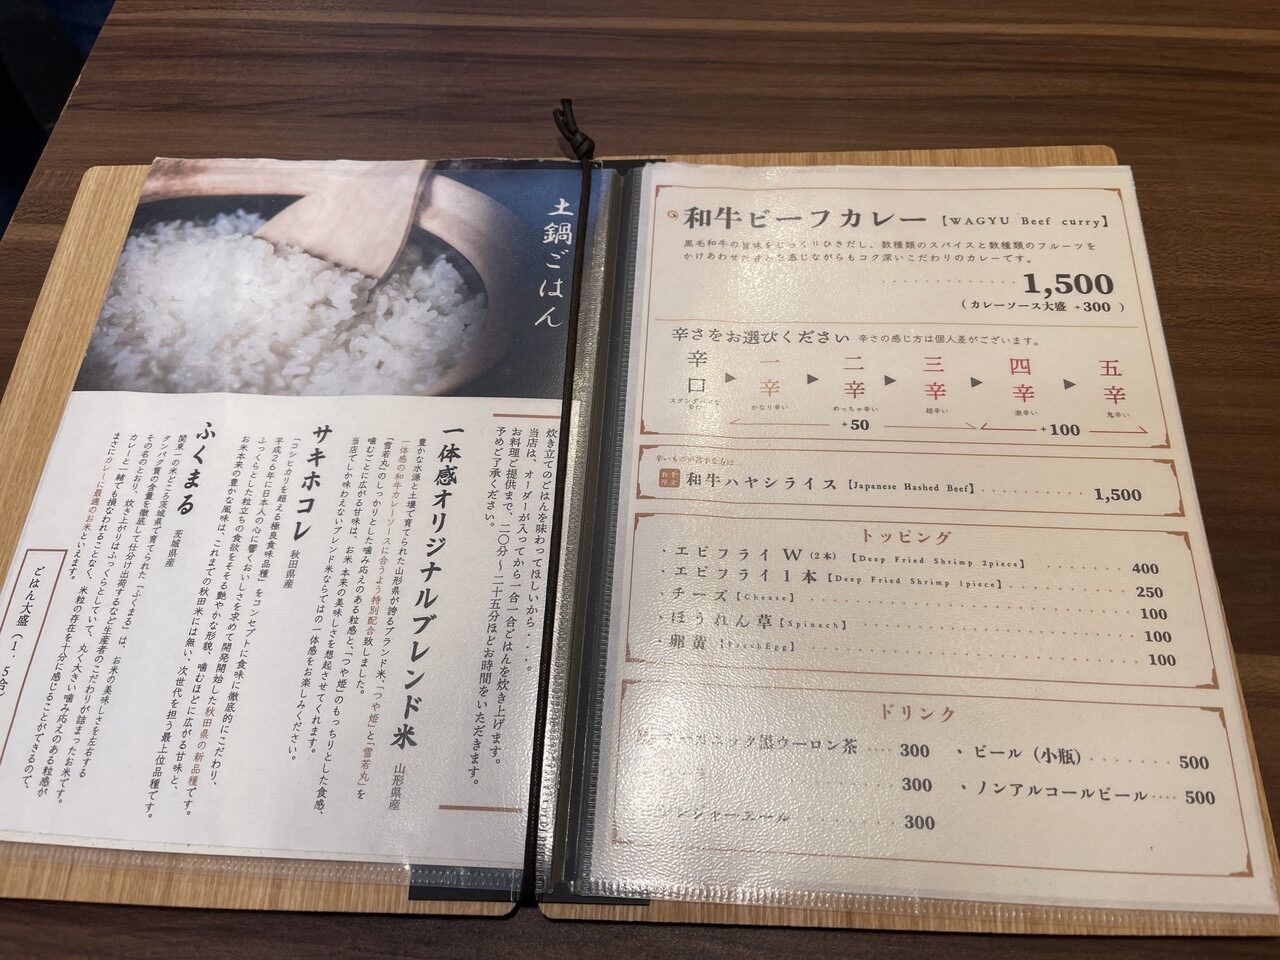 土鍋ごはん
炊き立てのごはんを味わってほしいから・・・。
当店は、オーダーが入ってから一合一合ごはんを炊き上げます。
お料理ご提供まで、二〇分～二十五分ほどお時間をいただきます。
予めご了承ください。
一体感オリジナルブレンド米 山形県産
豊かな水源と土壌で育てられた山形県が誇るブランド米、「つや姫」と「雪若丸」を
一体感の和牛カレーソースに合うよう特別配合致しました。
「雪若丸」のしっかりとした噛み応えのある粒感と、「つや姫」のもっちりとした食感、
噛むごとに広がる甘味は、お米本来の美味しさを想起させてくれます。
当店でしか味わえないブレンド米ならではの一体感をお楽しみください。
サキホコレ 秋田県産
「コシヒカリを超える極良食味品種」をコンセプトに食味に徹底的にこだわり、
平成26年に日本人の心に響くおいしさを求めて開発開始した秋田県の新品種です。
ふっくらとした粒立ちの食欲をそそる艶やかな形貌、噛むほどに広がる甘味と、
お米本来の豊かな風味は、これまでの秋田米には無い、次世代を担う最上位品種です。
ふくまる 茨城県産
関東一の米どころ茨城県で育てられた「ふくまる」は、お米の美味しさを左右する
タンパク質の含量を徹底して仕分け出荷するなど生産者のこだわりが詰まったお米です。
その名のとおり、炊き上がりはふっくらとしていて、丸く大きい噛み応えのある粒感が
カレーと一緒でも損なわれることなく、米粒の存在を十分に感じることができるので、
まさにカレーに最適のお米といえます。
ごはん大盛（1.5合）
和牛ビーフカレー【WAGYU Beef curry】
黒毛和牛の旨味をじっくりひきだし、数種類のスパイスと数種類のフルーツを
かけあわせ 感じながらもコク深いこだわりのカレーです。
1,500
（カレーソース大盛 +300）
辛さをお選びください 辛さの感じ方は個人差がございます。
辛口 ▶ 一辛 ▶ 二辛 ▶ 三辛 ▶ 四辛 ▶ 五辛
スタンダードな辛口 かなり辛い めっちゃ辛い 超辛い 激辛い 鬼辛い
+50 +100
辛いものが苦手な方は
和牛ハヤシライス【Japanese Hashed Beef】 1,500
トッピング
・エビフライW（2本）【Deep Fried Shrimp 2piece】 400
・エビフライ1本【Deep Fried Shrimp 1piece】 250
・チーズ【Cheese】 100
・ほうれん草【Spinach】 100
・卵黄【Fresh Egg】 100
ドリンク
黒ウーロン茶 300 ・ビール（小瓶） 500
300 ・ノンアルコールビール 500
ジンジャーエール 300